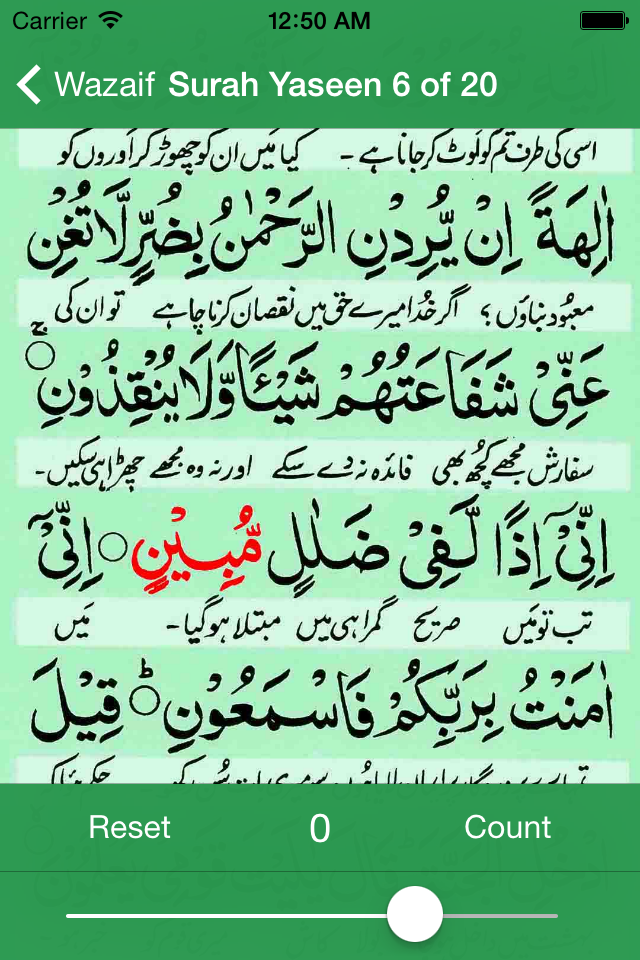 Carrier 12:50 AM
Wazaif Surah Yaseen 6 of 20
اسی کی طرف تم کو لوٹ کر جانا ہے ۔ کیا میں ان کو چھوڑ کر اوروں کو
اٰلِهَةً اِنْ يُّرِدْنِ الرَّحْمٰنُ بِضُرٍّ لَّا تُغْنِ
معبود بناؤں ؟ اگر خدا میرے حق میں نقصان کرنا چاہے تو ان کی
عَنِّيْ شَفَاعَتُهُمْ شَيْئًا وَّلَا يُنْقِذُوْنِ ۚ
سفارش مجھے کچھ بھی فائدہ نہ دے سکے اور نہ وہ مجھے چھڑا ہی سکیں۔
اِنِّيْٓ اِذًا لَّفِيْ ضَلٰلٍ مُّبِيْنٍ ۝ اِنِّيْٓ
تب تو میں صریح گمراہی میں مبتلا ہو گیا۔ میں
اٰمَنْتُ بِرَبِّكُمْ فَاسْمَعُوْنِ ۝ؕ قِيْلَ
Reset 0 Count